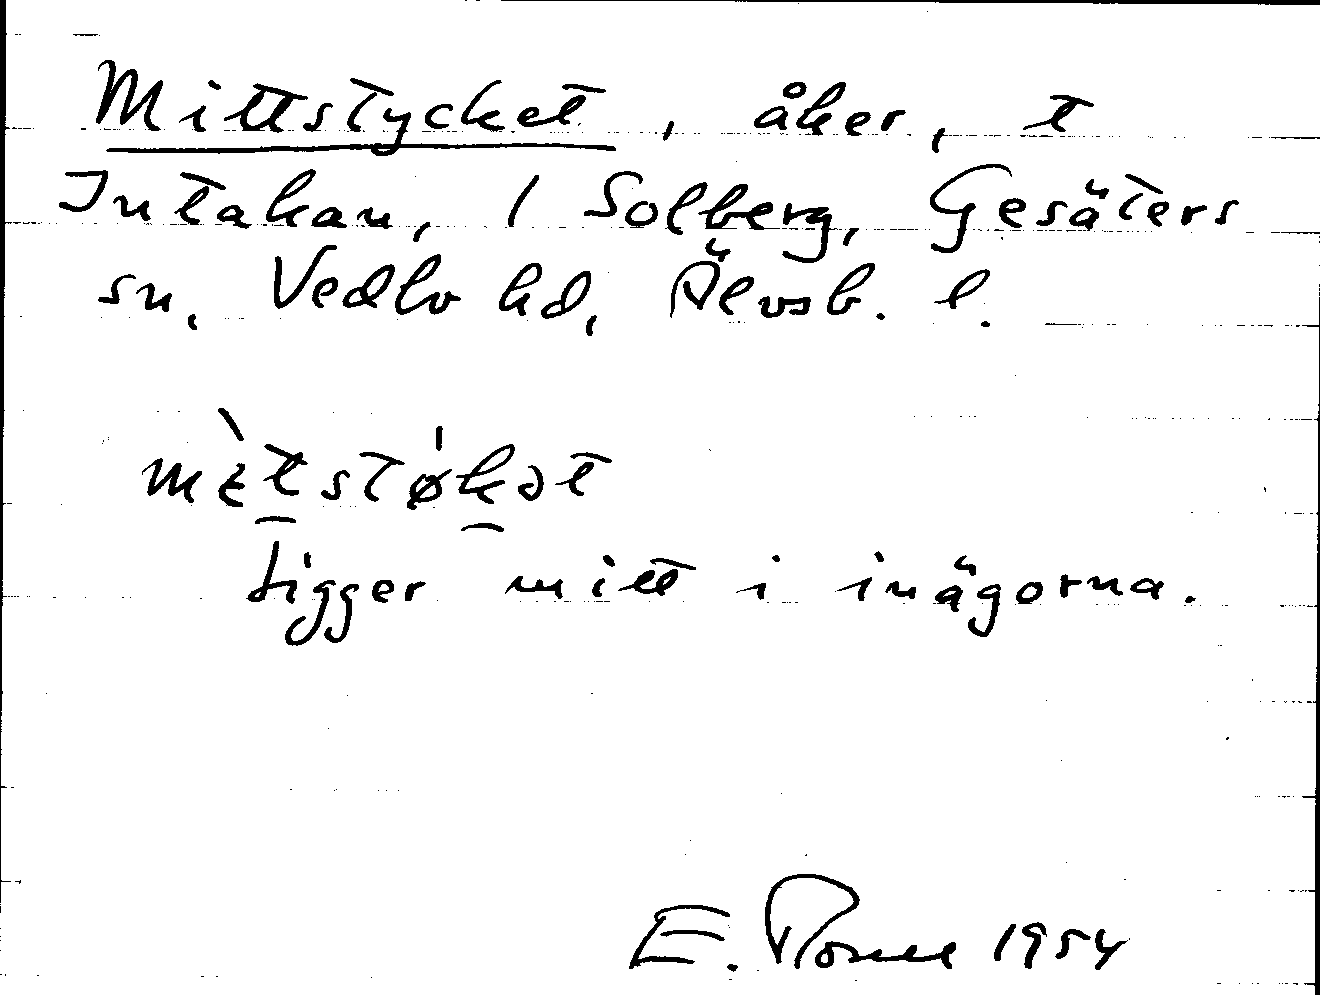 Mittstycket, åker, t
Intakan, 1 Solberg, Gesäters
sn, Vedbo hd, Älvsb. l.
mɛ̀tstǿkət
Ligger mitt i inägorna.
E. 1954